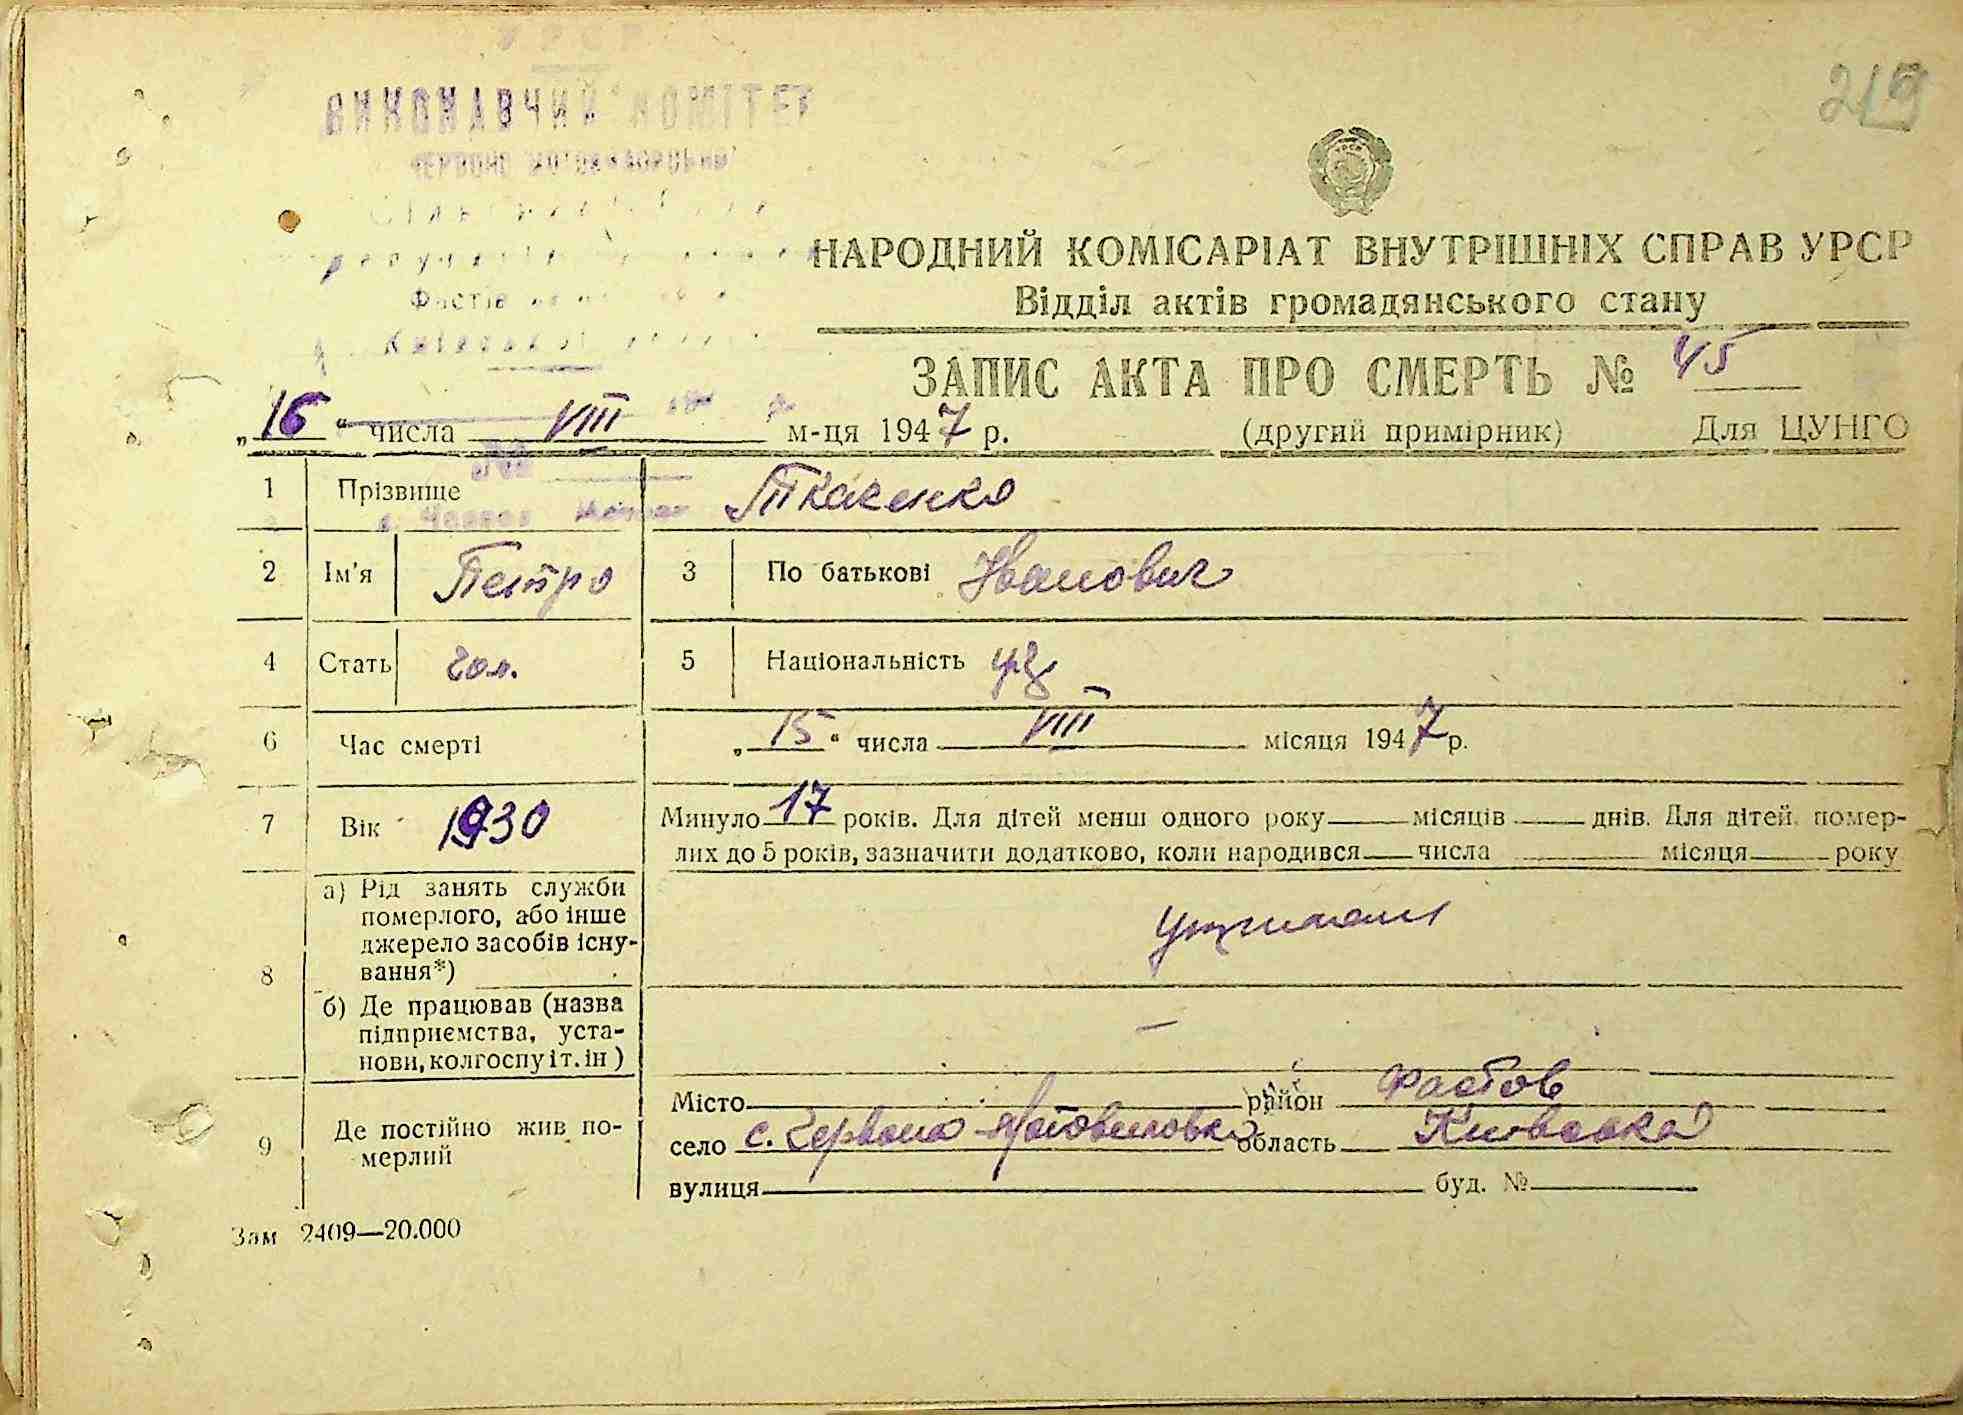 219
ВИКОНАВЧИЙ КОМІТЕТ
НАРОДНИЙ КОМІСАРІАТ ВНУТРІШНІХ СПРАВ УРСР
Відділ актів громадянського стану
ЗАПИС АКТА ПРО СМЕРТЬ № 45
„16“ числа VIII м-ця 1947 р. (другий примірник) Для ЦУНГО
1 Прізвище Ткаченко
2 Ім'я Петро 3 По батькові Іванович
4 Стать чол. 5 Національність укр
6 Час смерті „15“ числа VIII місяця 1947 р.
7 Вік 1930 Минуло 17 років. Для дітей менш одного року місяців днів. Для дітей, помер-
лих до 5 років, зазначити додатково, коли народився числа місяця року
8 а) Рід занять служби
померлого, або інше
джерело засобів існу-
вання*)
утриманн
б) Де працював (назва
підприємства, уста-
нови, колгоспу і т. ін)
—
9 Де постійно жив по-
мерлий
Місто район Фастов
село с. Червона Мотовиловка область Киевская
вулиця буд. №
Зам 2409—20.000